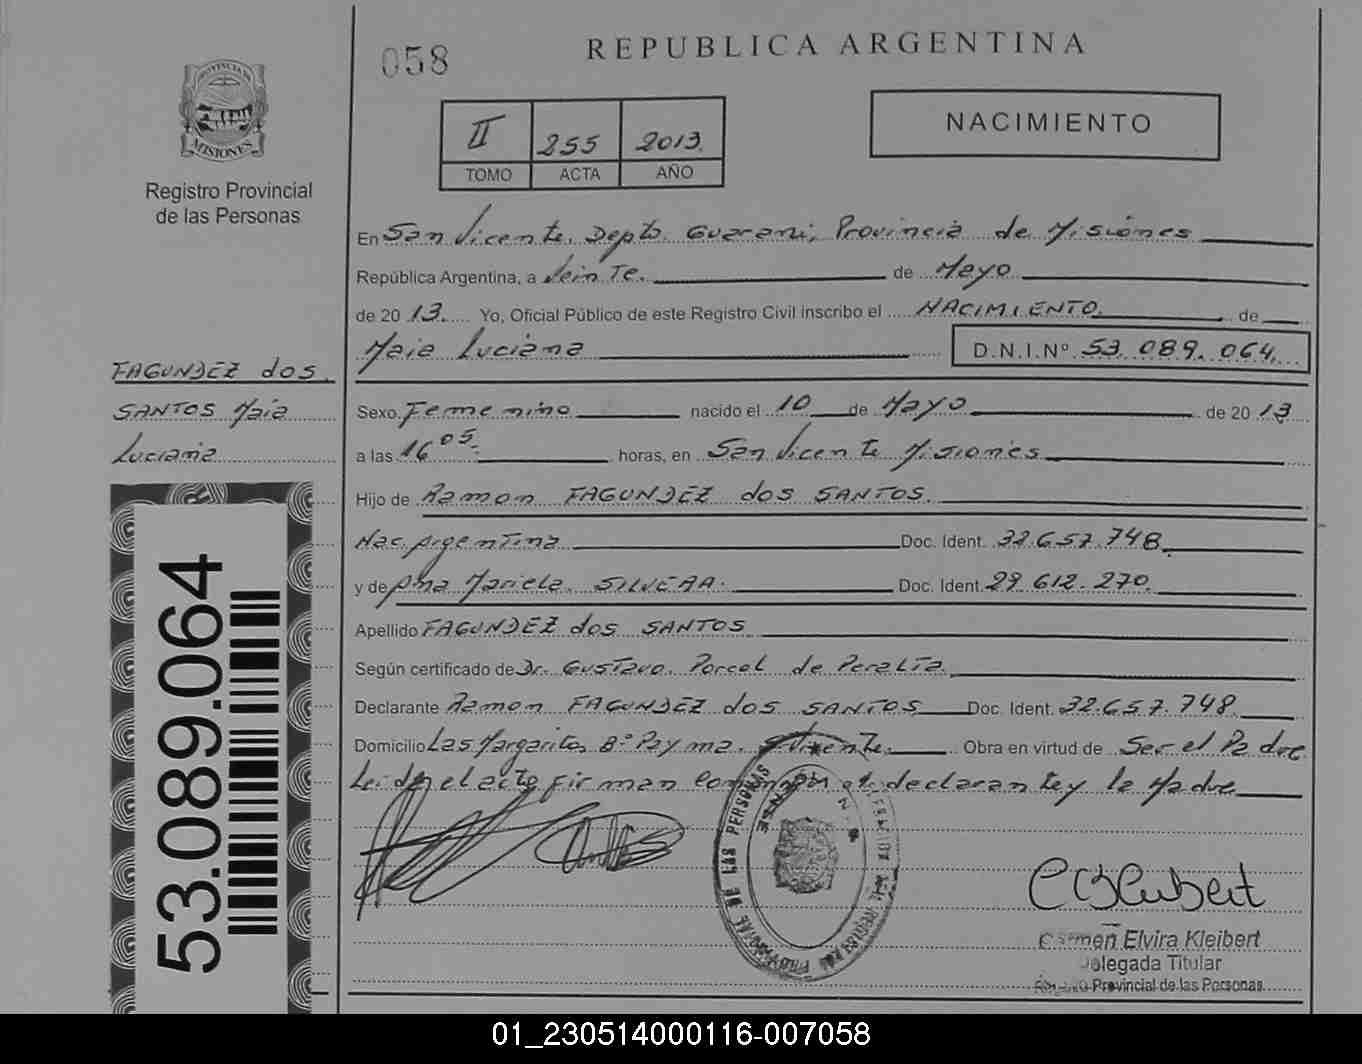 058
REPUBLICA ARGENTINA
PROVINCIA DE
MISIONES
Registro Provincial
de las Personas
II 255 2013.
TOMO ACTA AÑO
NACIMIENTO
En San Vicente. Depto. Guarani, Provincia de Misiones
República Argentina, a Veinte. de Mayo
de 20 13. Yo, Oficial Público de este Registro Civil inscribo el NACIMIENTO. de
Maia Luciana D.N.I.Nº 53.089.064.
FAGUNDEZ dos.
SANTOS Maia
Luciana
Sexo Femenino nacido el 10 de Mayo de 20 13
a las 16 05 horas, en San Vicente Misiones
Hijo de Ramon FAGUNDEZ dos SANTOS.
Nac. Argentina Doc. Ident. 32.657.748.
y de Ana Mariela. SILVERA. Doc. Ident. 29.612.270.
Apellido FAGUNDEZ dos SANTOS
Según certificado de Dr. Gustavo. Porcel de Peralta
Declarante Ramon FAGUNDEZ dos SANTOS Doc. Ident. 32.657.748
Domicilio Las Margaritas Bº Payma. S. Vicente. Obra en virtud de Ser el Padre
Leida el acto firman conmigo el declarante y la Madre
53.089.064
PROVINCIAL DE LAS PERSONAS
Carmen Elvira Kleibert
Delegada Titular
Registro Provincial de las Personas
01_230514000116-007058